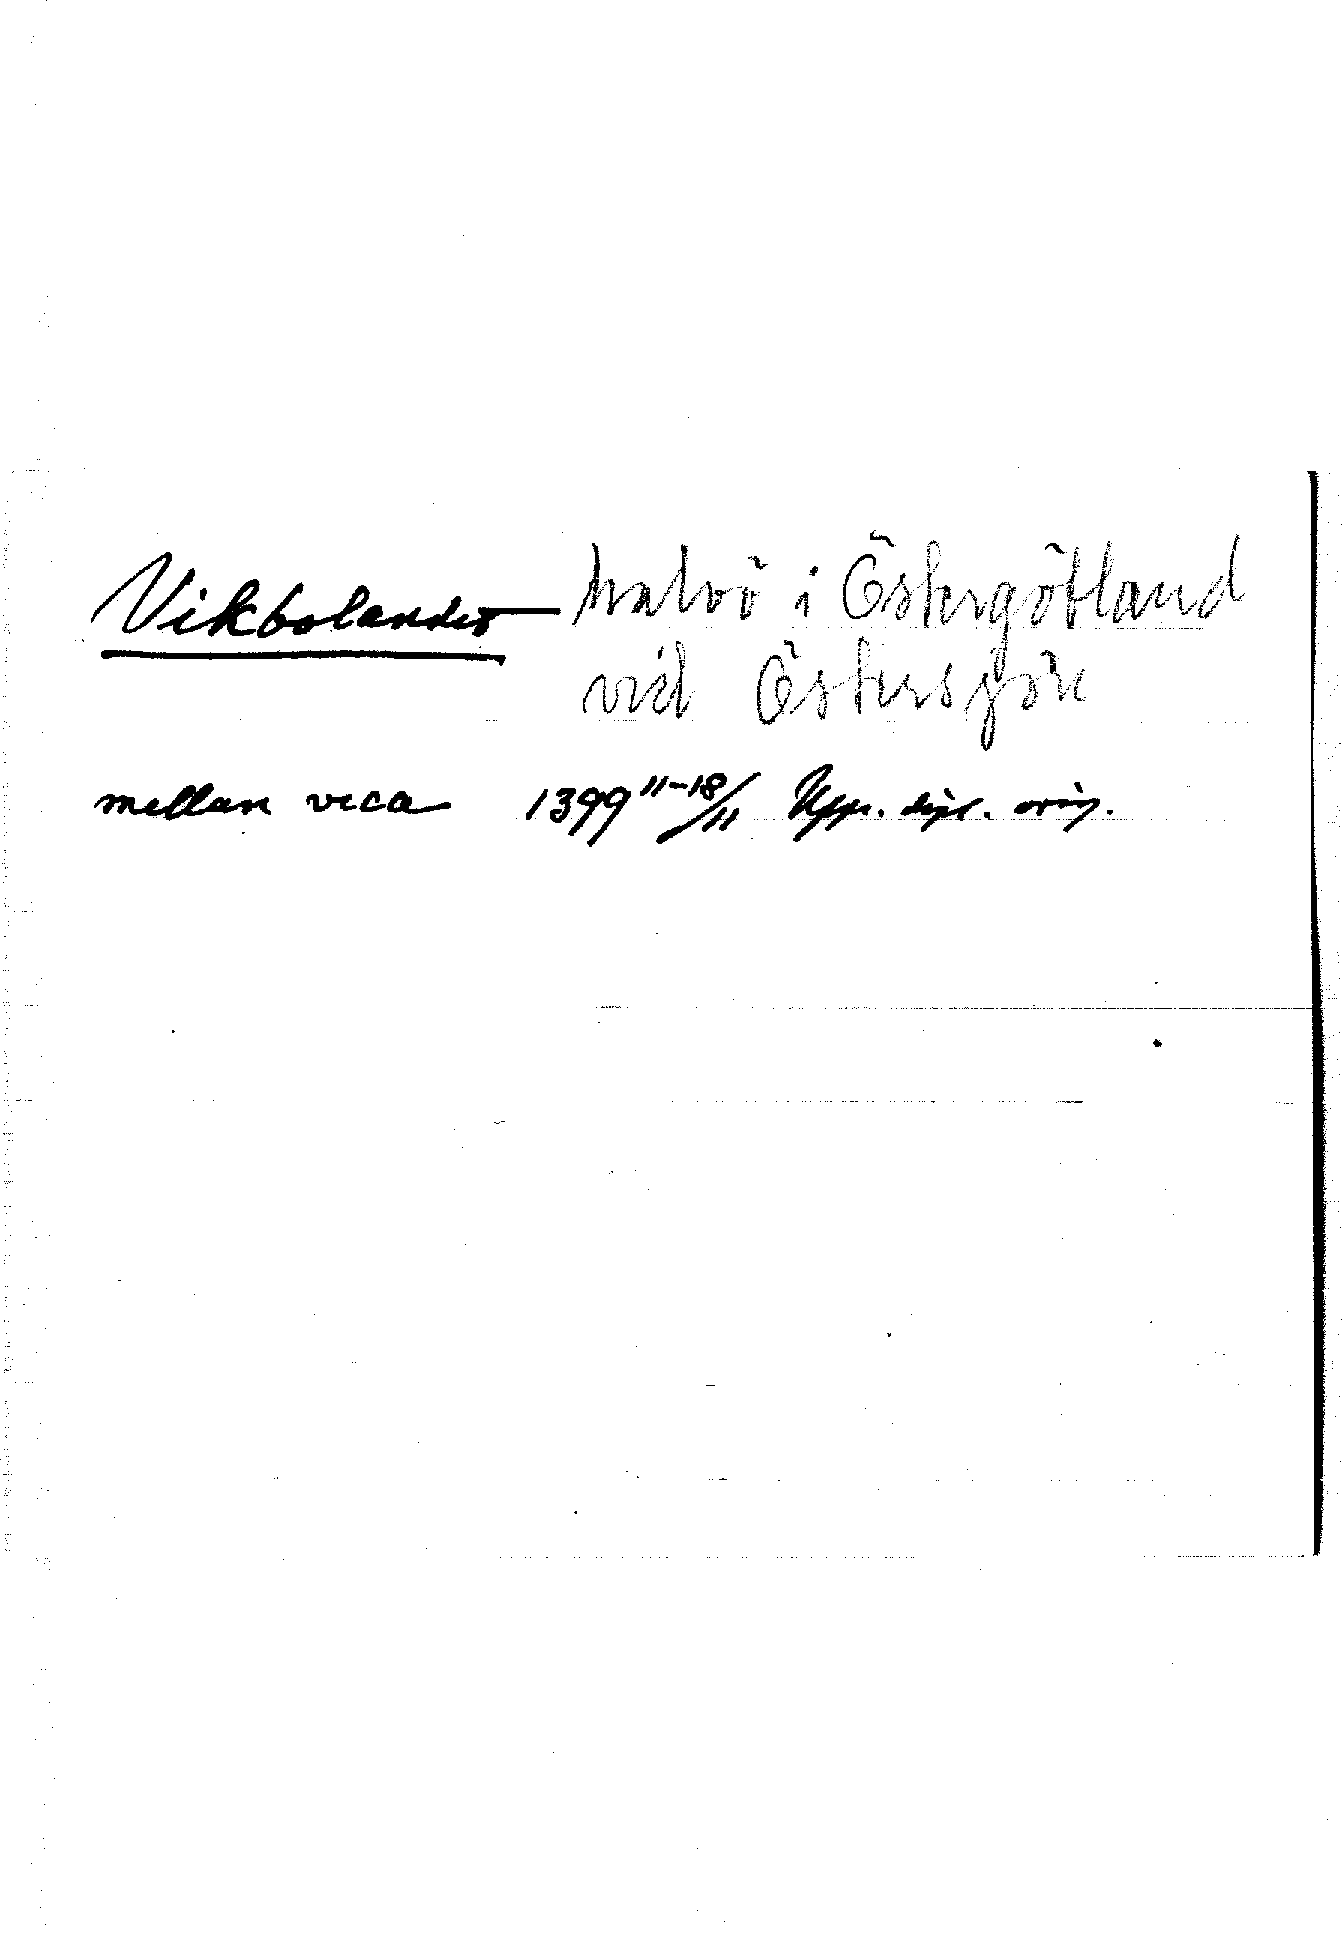 Vikbolandet halvö i Östergötland
vid Östersjön
mellan vica 1399 11-18/11 Upps. dipl. orig.